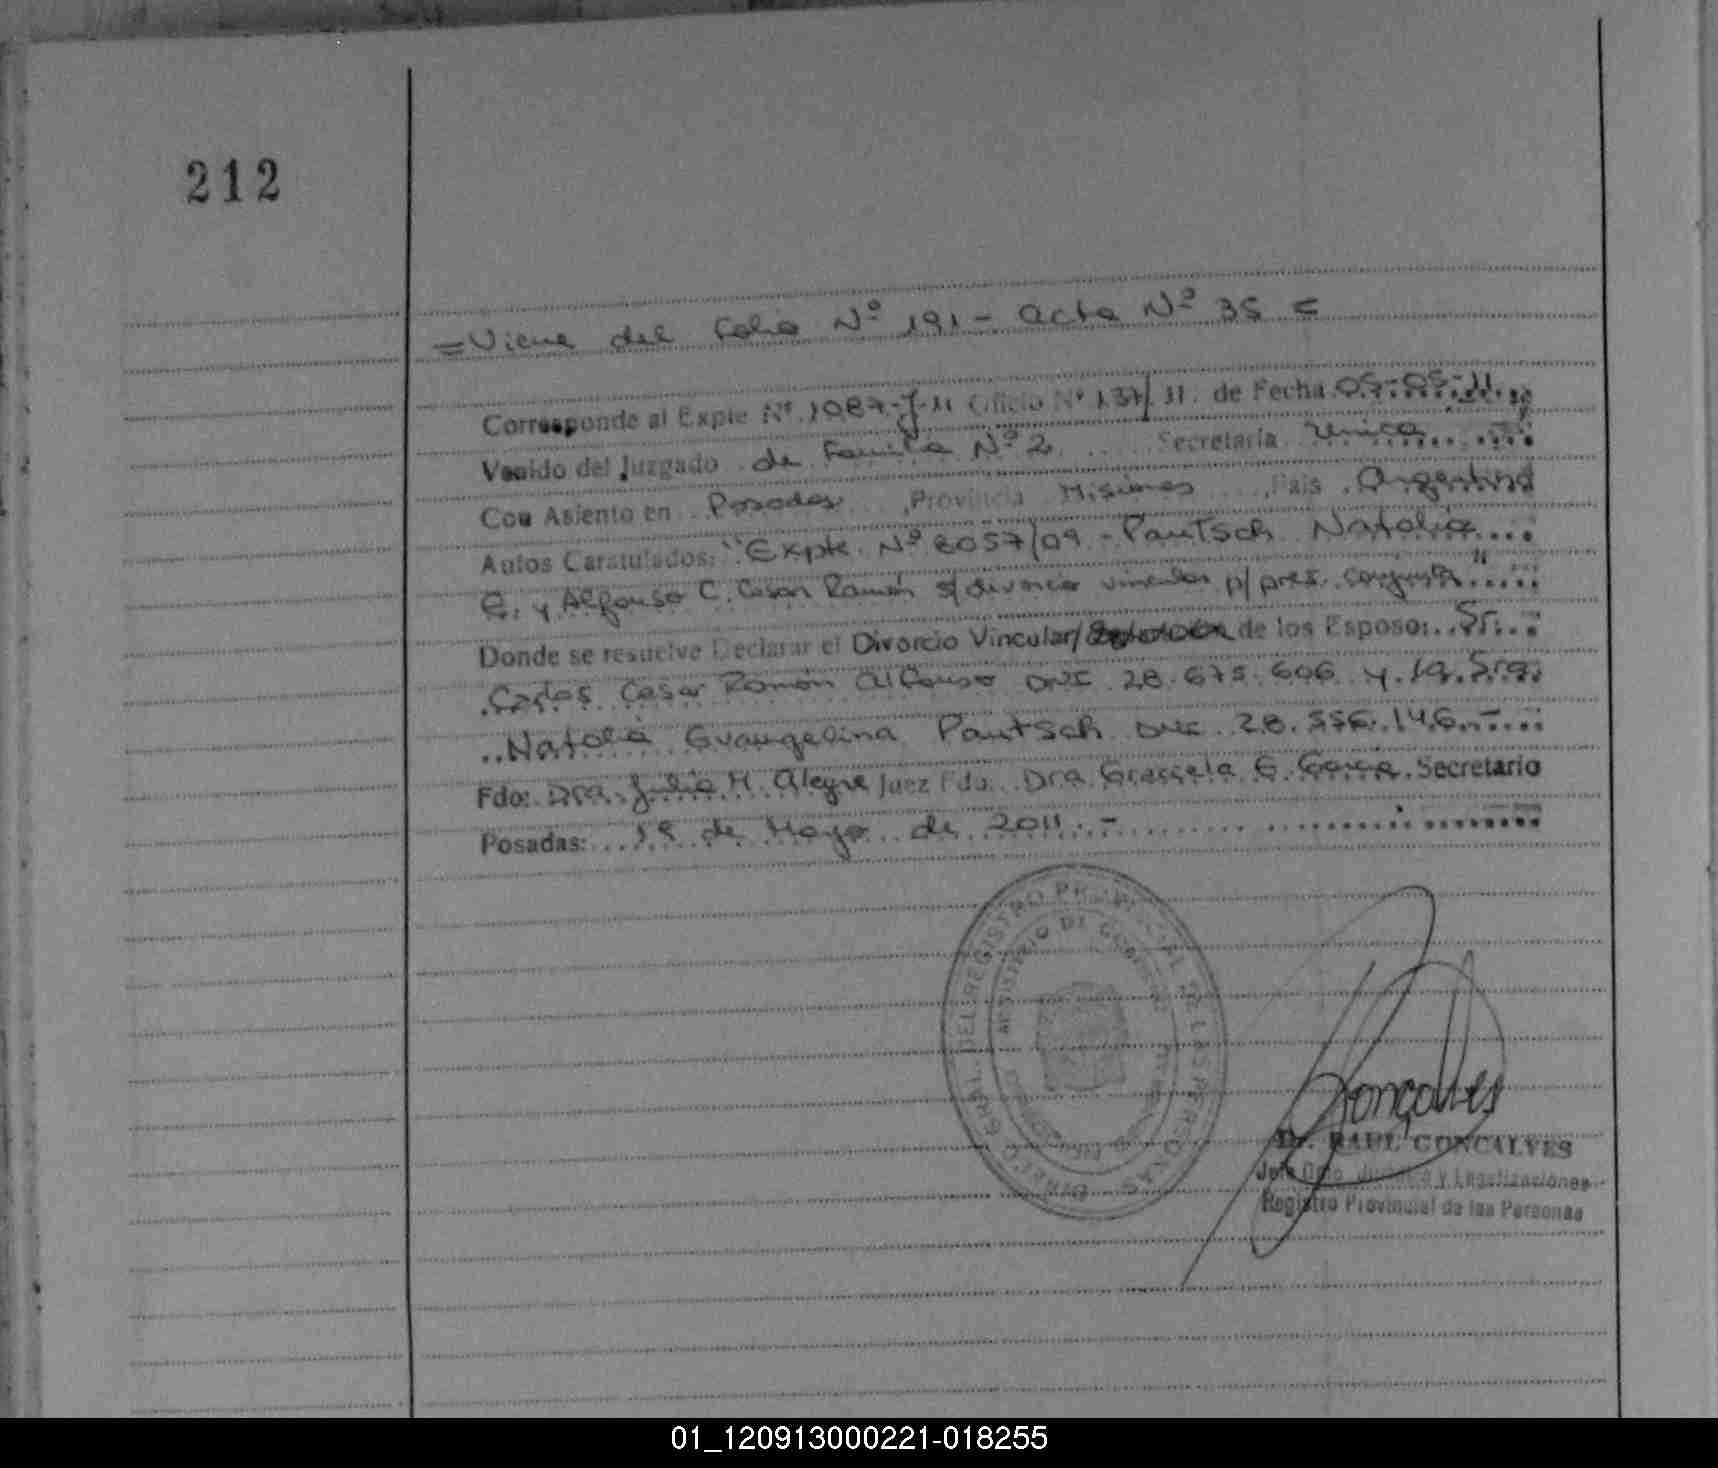 212
= Viene del Folio Nº 191 - Acta Nº 35 =
Corresponde al Expte Nº 1087-J-11 Oficio Nº 137/11. de Fecha 05-05-11
Venido del Juzgado de Familia Nº 2 Secretaría Unica
Con Asiento en Posadas, Provincia Misiones, País Argentina
Autos Caratulados: "Expte. Nº 8057/09 - Pautsch Natalia
E. y Alfonso C. Cesar Ramón s/divorcio vincular p/ pres. conjunta"
Donde se resuelve Declarar el Divorcio Vincular/ de los Esposos: Sr.
Carlos Cesar Ramón Alfonso DNI 28.675.606 y la Sra.
Natalia Evangelina Pautsch DNI 28.556.146.-
Fdo: Dra. Julia H. Alegre Juez Fdo: Dra. Graciela E. Garcia Secretario
Posadas: 19 de Mayo de 2011.-
DIRECC. GRAL. DEL REGISTRO PROVINCIAL DE LAS PERSONAS
MINISTERIO DE GOBIERNO
Gonçalves
Dr. RAUL GONCALVES
Jefe Dpto. Jurídico y Legalizaciones
Registro Provincial de las Personas
01_120913000221-018255